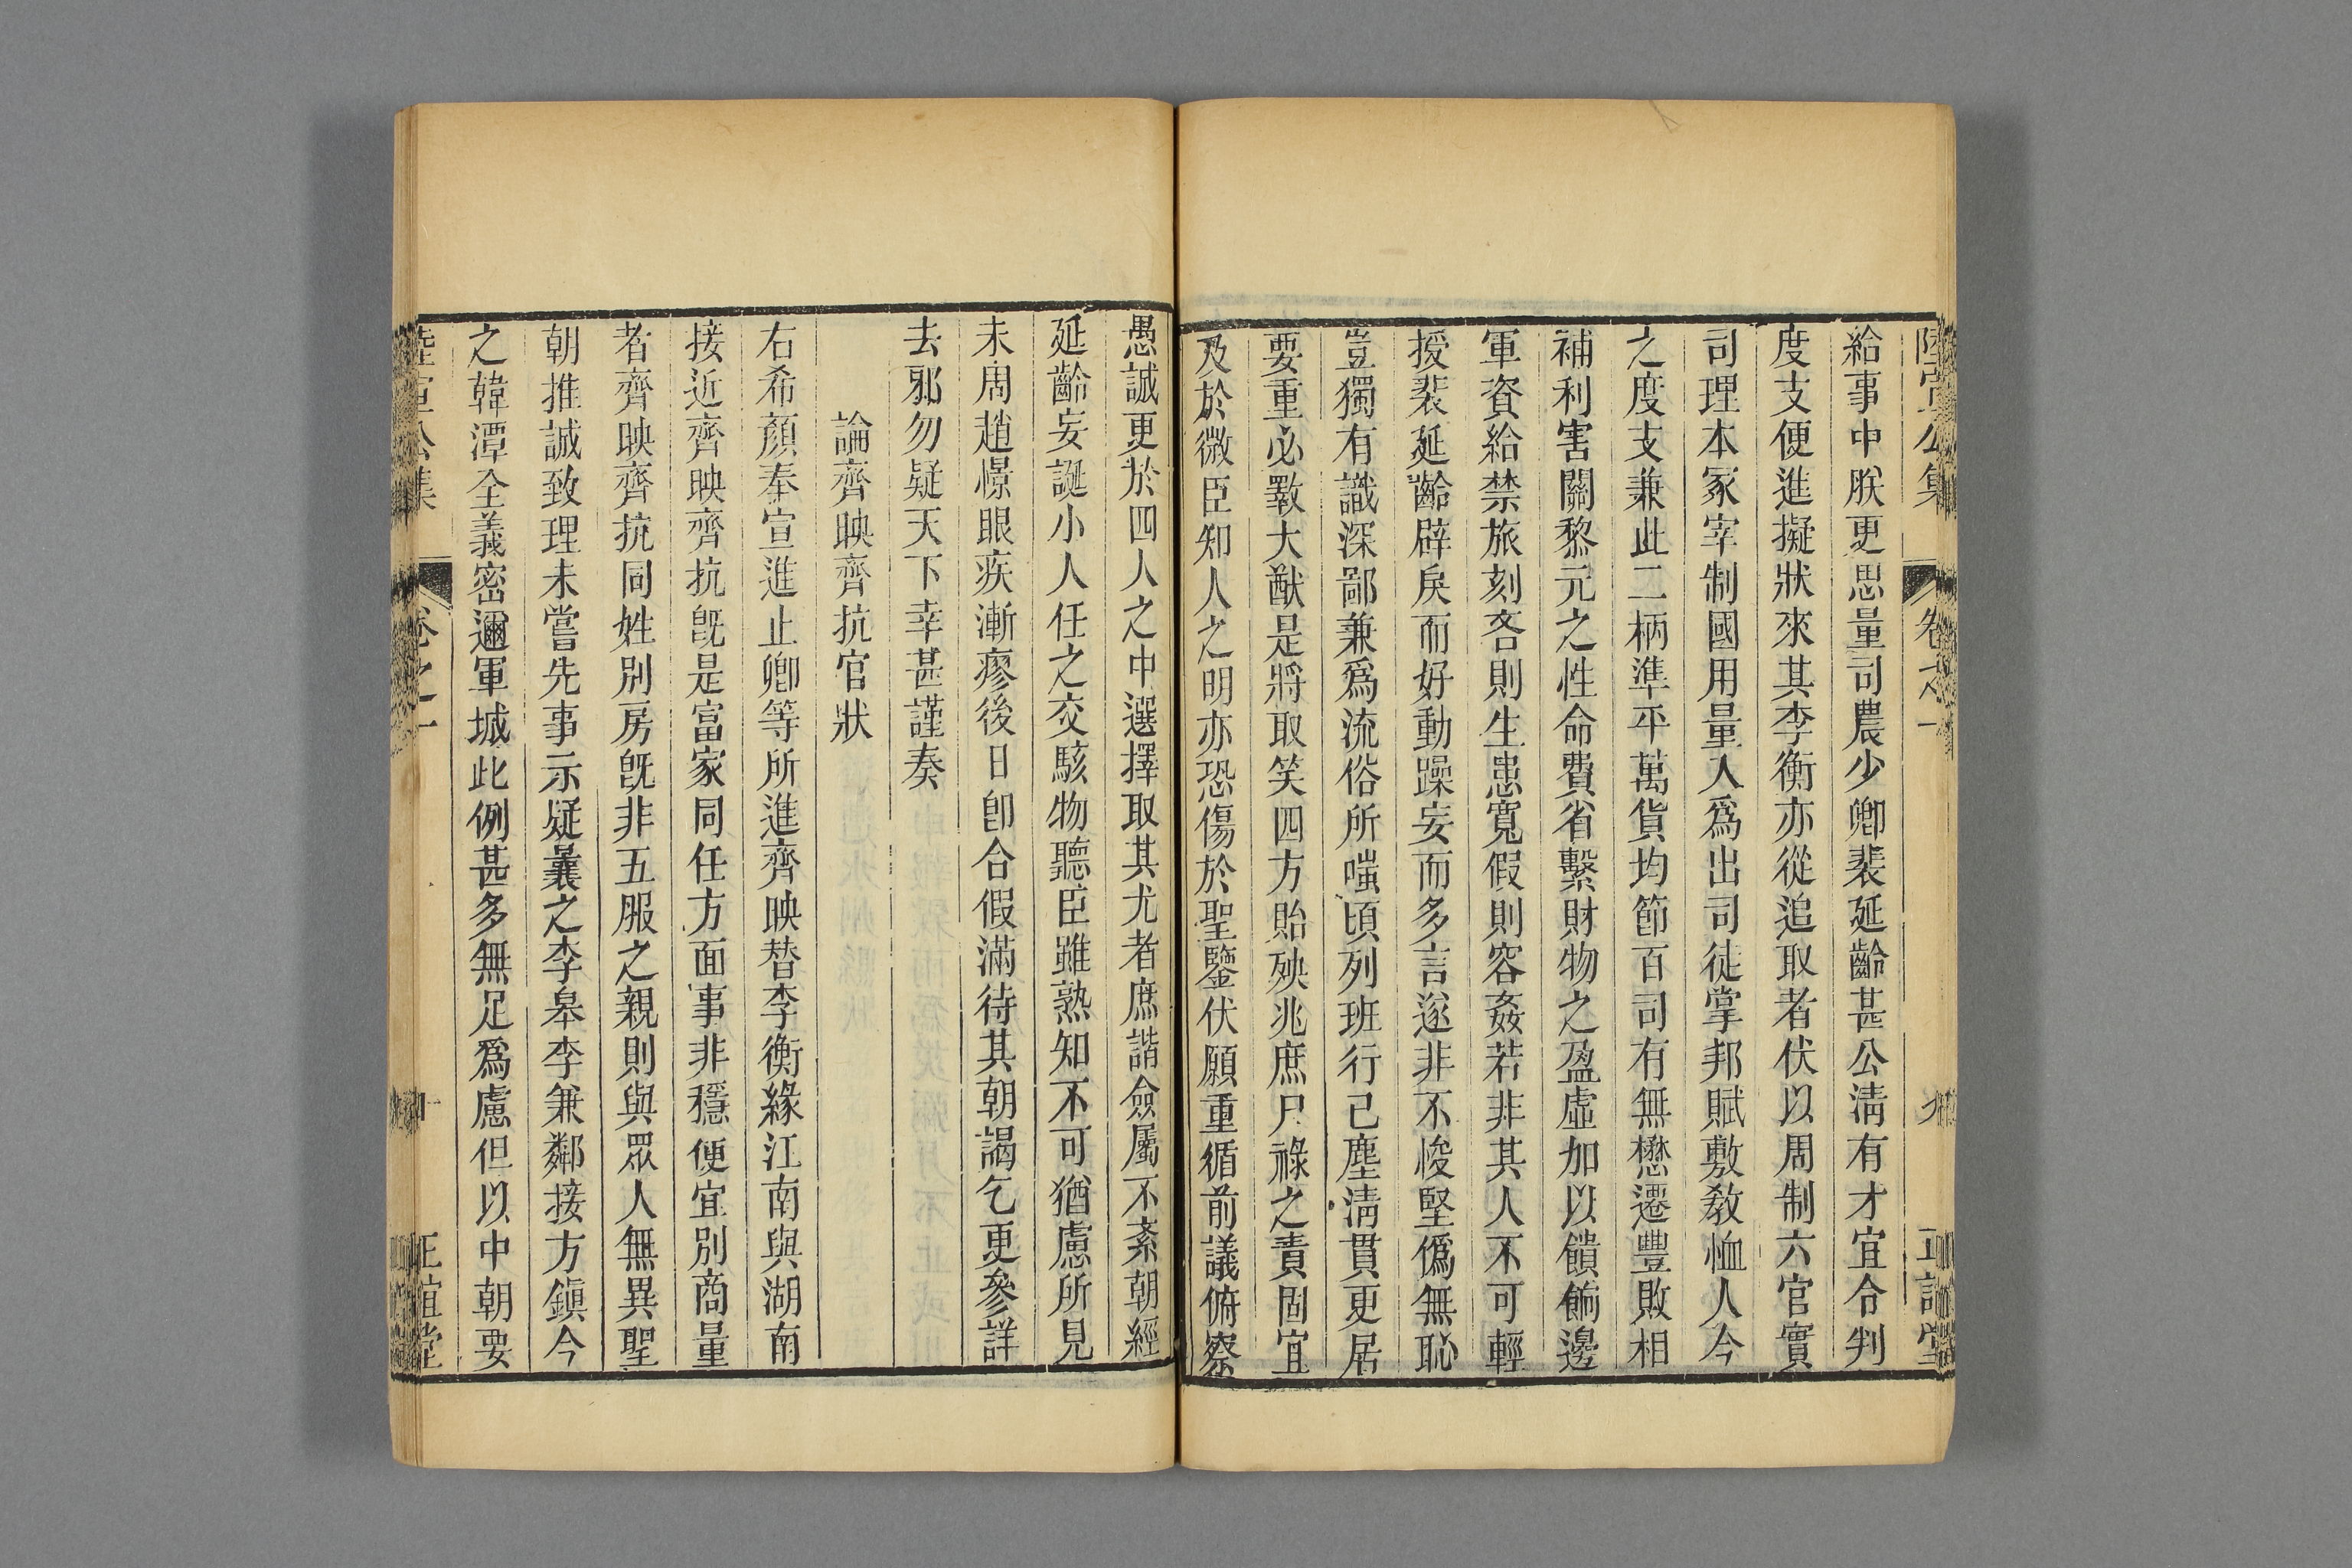 陸宣公集 卷之一 九 正誼堂
給事中朕更思量司農少卿裴延齡甚公清有才宜合判
度支便進擬狀來其李衡亦從追取者伏以周制六官實
司理本冢宰制國用量入爲出司徒掌邦賦敷教恤人今
之度支兼此二柄準平萬貨均節百司有無懋遷豐敗相
補利害關黎元之性命費省繫財物之盈虛加以饋餉邊
軍資給禁旅刻吝則生患寬假則容姦若非其人不可輕
授裴延齡辟戾而好動躁妄而多言遂非不悛堅僞無恥
豈獨有識深鄙兼爲流俗所嗤頃列班行已塵清貫更居
要重必斁大猷是將取笑四方貽殃兆庶尸祿之責固宜
及於微臣知人之明亦恐傷於聖鑒伏願重循前議俯察
愚誠更於四人之中選擇取其尤者庶諧僉屬不紊朝經
延齡妄誕小人任之交駭物聽臣雖熟知不可猶慮所見
未周趙憬眼疾漸瘳後日卽合假滿待其朝謁乞更參詳
去邪勿疑天下幸甚謹奏
論齊映齊抗官狀
右希顏奉宣進止卿等所進齊映替李衡緣江南與湖南
接近齊映齊抗旣是富家同任方面事非穩便宜別商量
者齊映齊抗同姓別房旣非五服之親則與眾人無異聖
朝推誠致理未嘗先事示疑曩之李皋李兼鄰接方鎭今
之韓潭全義密邇軍城此例甚多無足爲慮但以中朝要
陸宣公集 卷之一 十 正誼堂